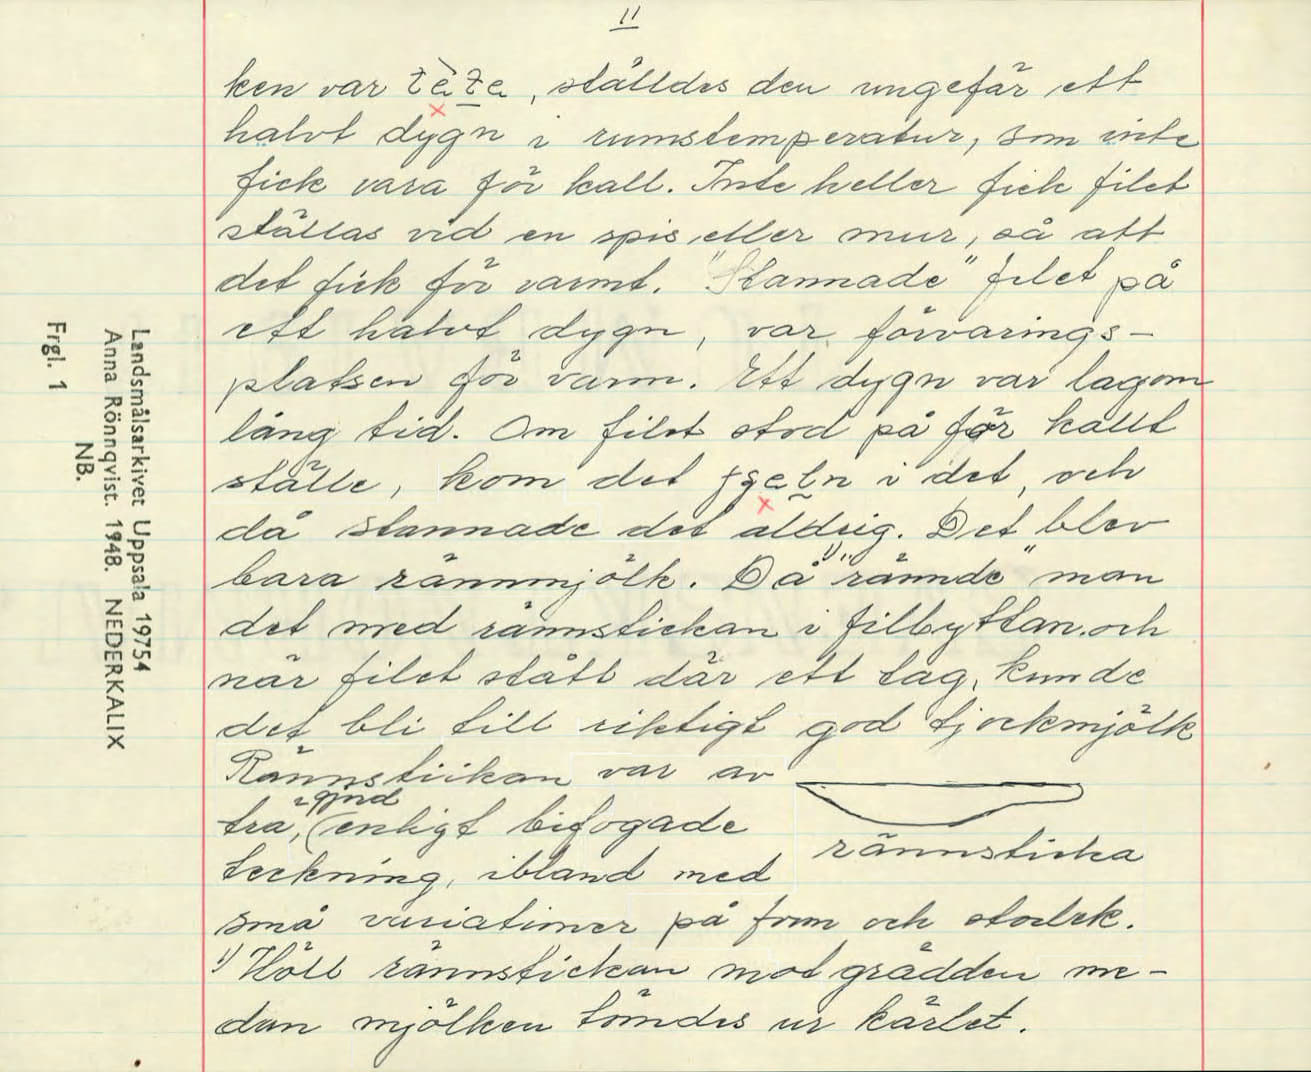 11
ken var tète, ställdes den ungefär ett
halvt dygn i rumstemperatur, som inte
fick vara för kall. Inte heller fick filet
ställas vid en spis eller mur, så att
det fick för varmt. "Stannade" filet på
ett halvt dygn, var förvarings-
platsen för varm. Ett dygn var lagom
lång tid. Om filet stod på för kallt
ställe, kom det i det, och
då stannade det aldrig. Det blev
bara rännmjölk. Då 1) "rännde" man
det med rännstickan i filbyttan och
när filet stått där ett tag, kunde
det bli till riktigt god tjockmjölk
Rännstickan var av
trä, gjord enligt bifogade
teckning, ibland med
rännsticka
små variationer på form och storlek.
1) Höll rännstickan mot grädden me-
dan mjölken tömdes ur kärlet.
Landsmålsarkivet Uppsala 19754
Anna Rönnqvist. 1948. NEDERKALIX
NB.
Frgl. 1